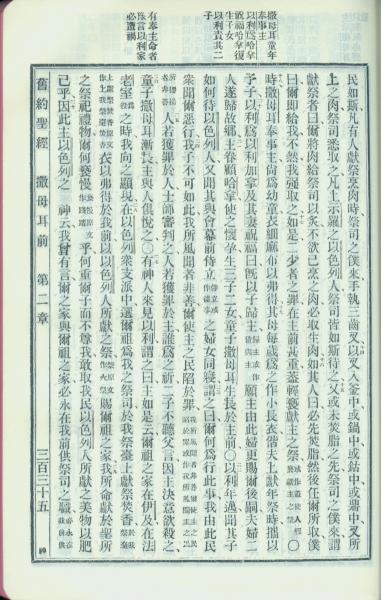 撒母耳童年
奉事主
以利爲哈拿
祝福哈拿復
生子女
以利責其二
子
有奉主命者
來言以利家
必遭禍
民如斯凡有人獻祭烹肉時祭司之僕來手執三齒叉以叉入釜中或鍋中或鈷中或鼎中叉所
上之肉祭司悉取之凡上示羅之以色列人祭司皆如斯待之又或未焚脂之先祭司之僕來謂
獻祭者曰爾將肉給祭司以炙不欲已烹之肉必取生肉如其人曰必先焚脂然後任爾所取僕
曰爾即給我不然我強取之如是二少者之罪在主前甚重蓋輕褻獻主之祭
時撒母耳奉事主尙爲幼童衣細麻布以弗得其母每歲爲之作小長衣偕夫上獻年祭時攜以
予子以利爲以利加拿及其妻祝福曰既以子歸主願主由此婦更賜爾後嗣夫婦二
人遂歸故鄉主眷顧哈拿使之懷孕生三子二女童子撒母耳生長於主前〇以利年邁聞其子
如何待以色列人又聞其與會幕前侍立之婦女同寢謂之曰爾何爲行此事我由此民
衆聞爾惡行我子不可如此我所風聞者非善爾使主之民陷於罪
人若獲罪於人士師審判之人若獲罪於主誰爲之祈二子不聽父言因主決意欲殺之
童子撒母耳漸長主與人俱悅之〇有神人來見以利謂之曰主如是云爾祖之家在伊及在法
老室之時我向之顯現在以色列衆支派中選爾祖爲我之祭司於我祭臺上獻祭焚香
衣以弗得於我前以以色列人所獻之祭賜爾祖之家我所命獻於聖所
之祭祀禮物爾何褻慢乎何重爾子而不尊我敢取我民以色列人所獻之美物以肥
己乎因此主以色列之神云我曾有言爾之家與爾祖之家必永在我前供祭司之職
舊約聖經 撒母耳前 第二章 三百三十五